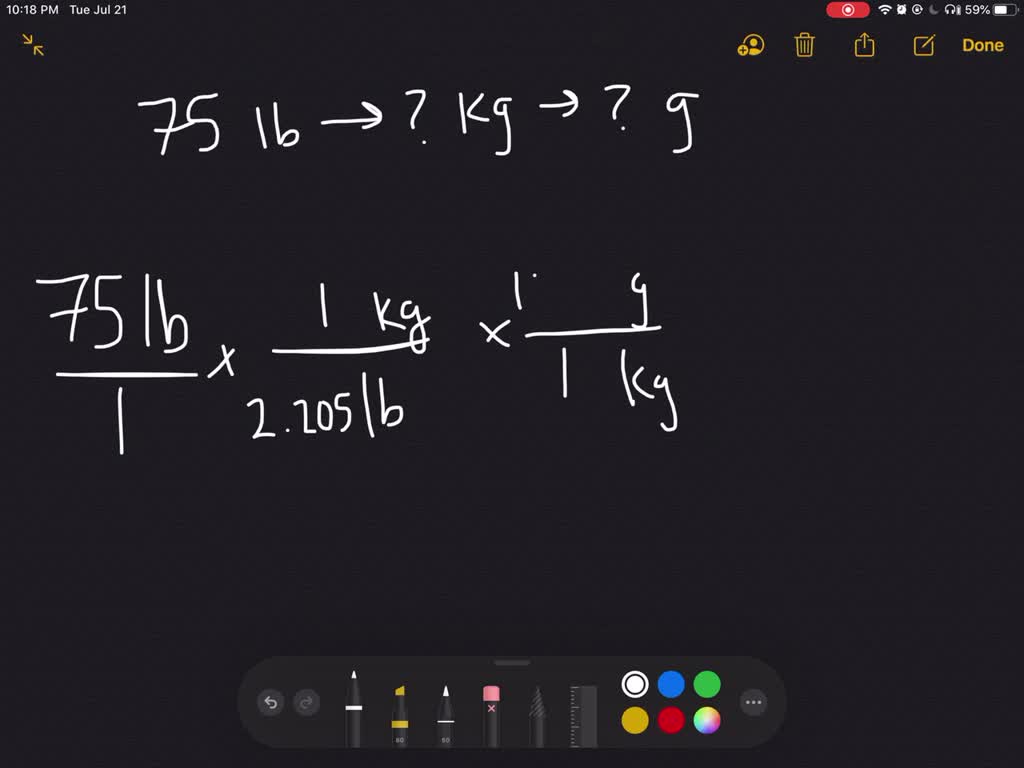 10:18 PM Tue Jul 21 59%
Done
75 lb → ? kg → ? g
75 lb × 1 kg × 1 g
1 2.205 lb 1 kg
80 50